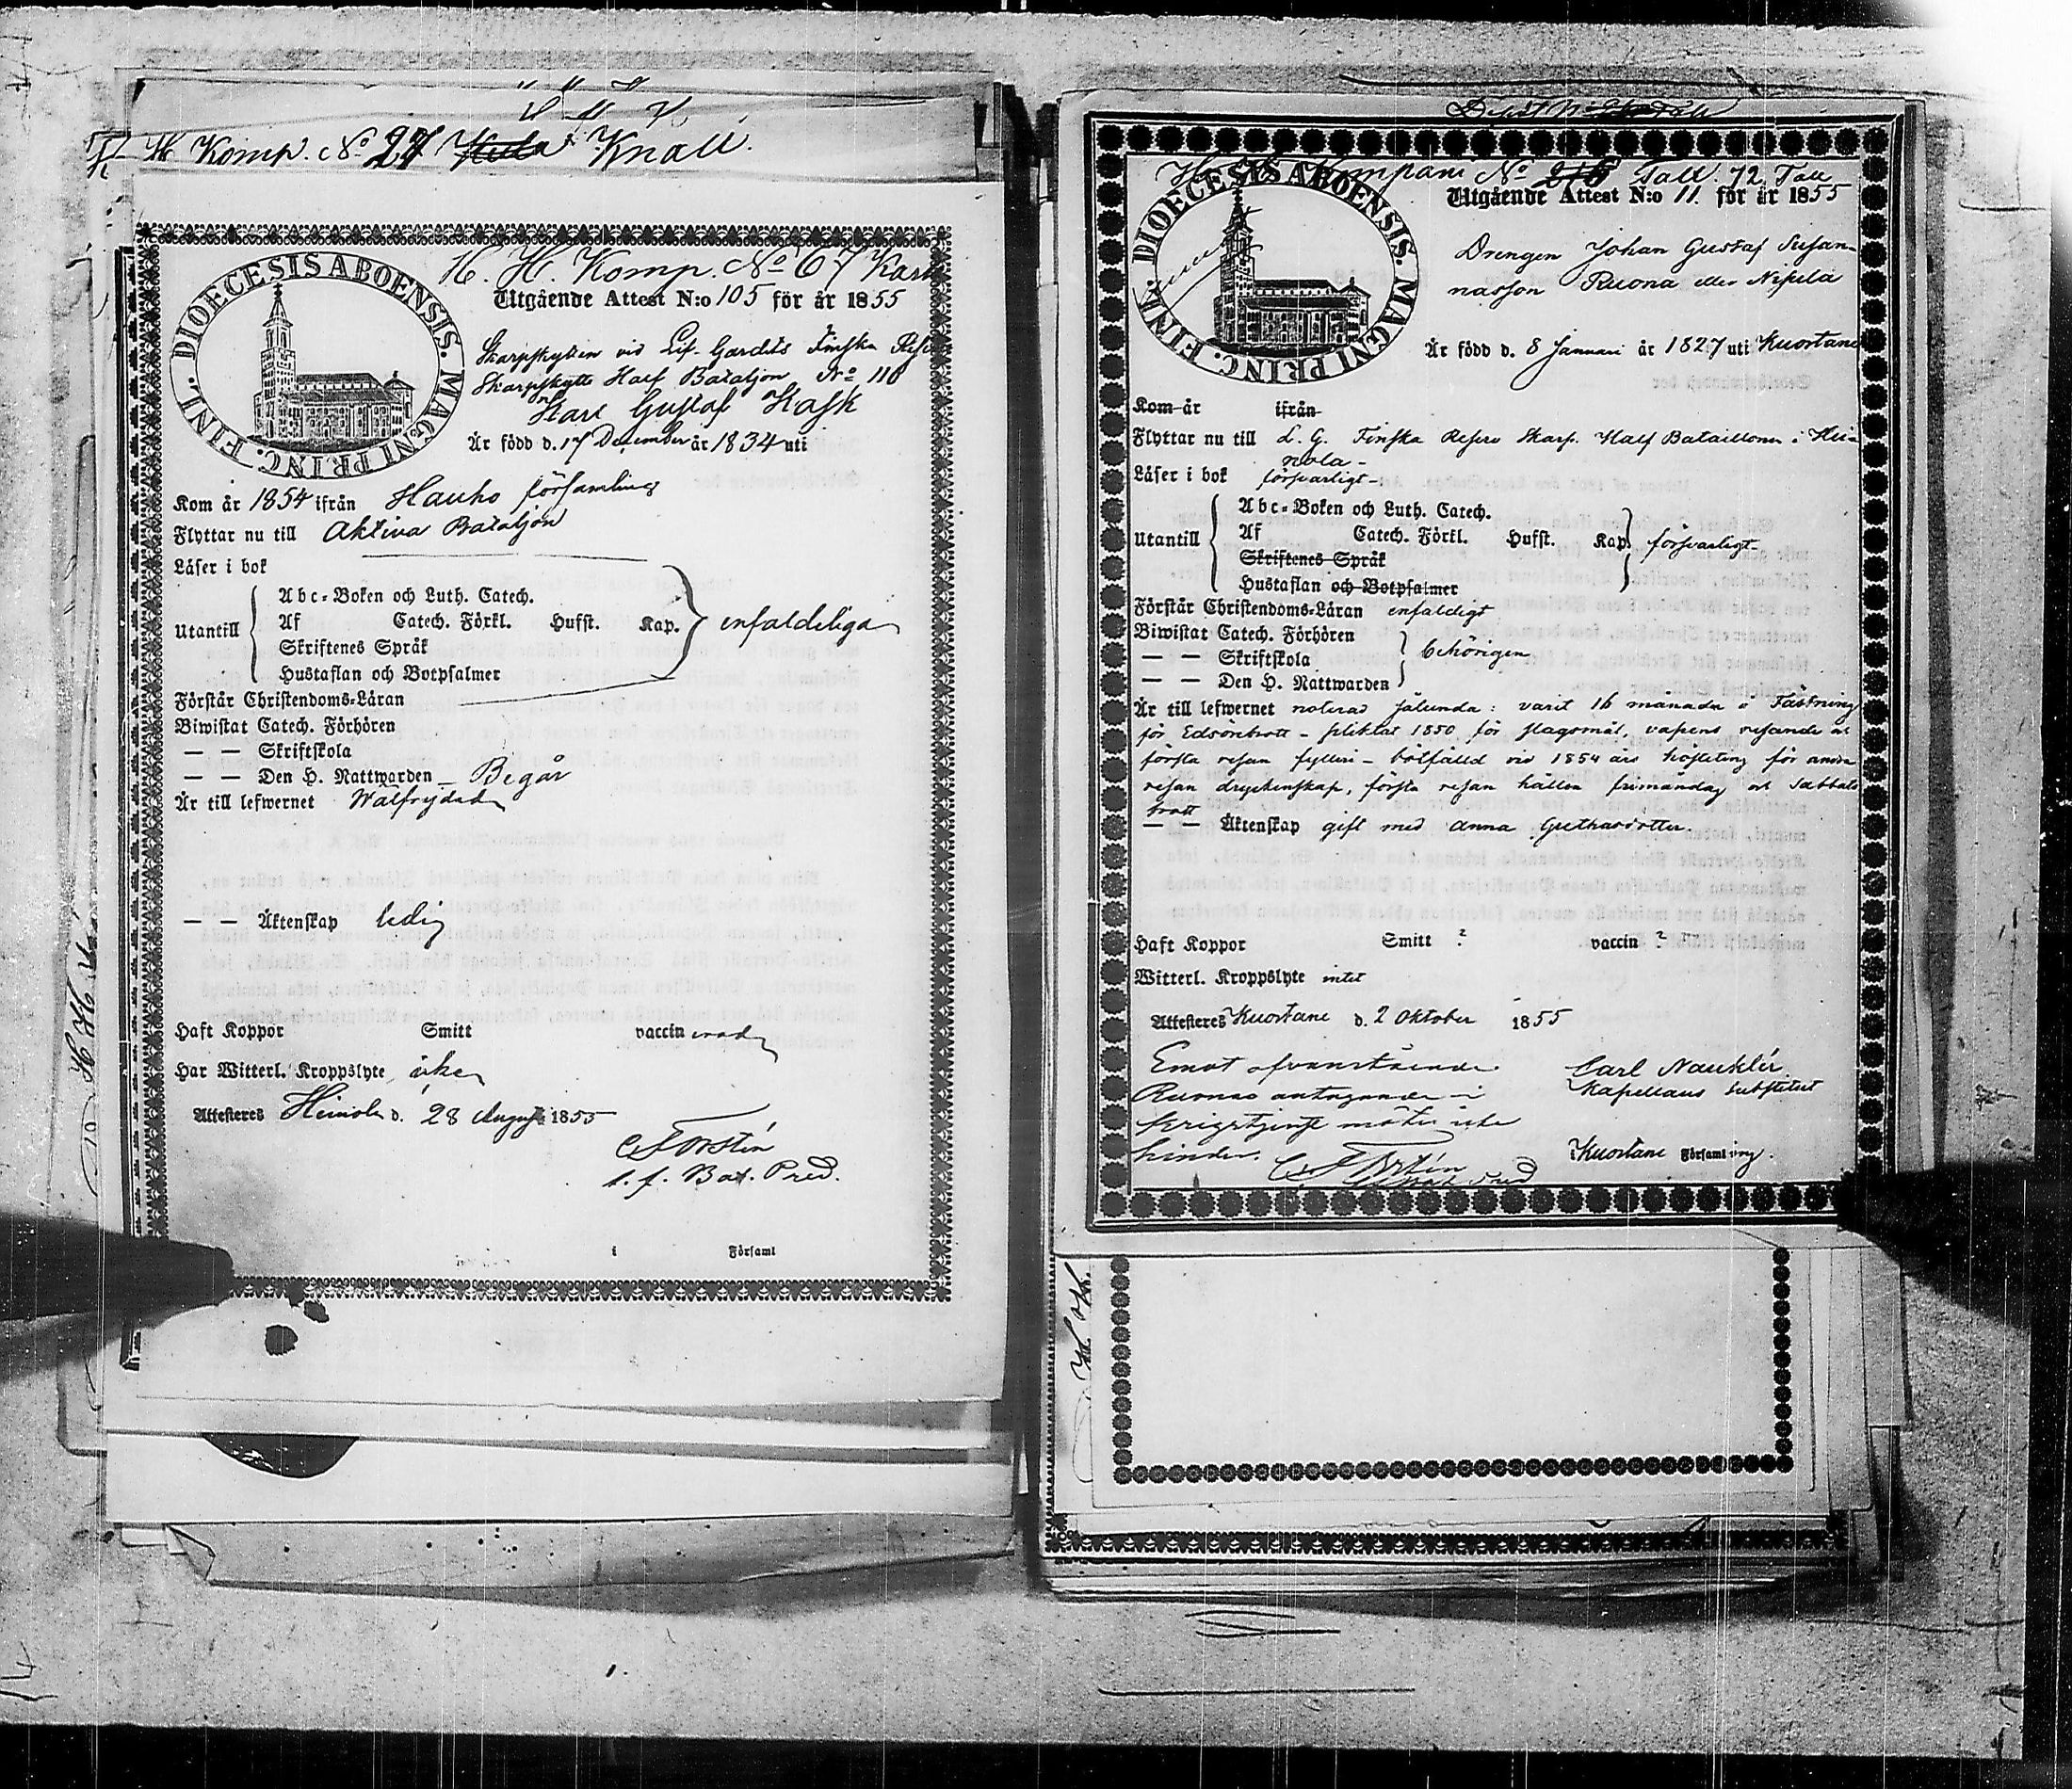 H Komp. No 27 Knall.
H. H. Komp. No 67 Kask
DIOECESIS ABOENSIS. MAGNI PRINC. FINL.
Utgående Attest N:o 105 för år 1855
Skarpskytten vid Lif-Gardets Finska Res.
Skarpskytte Half Bataljon No 110
Karl Gustaf Kask
Är född d. 17 December år 1834 uti
Kom år 1854 ifrån Hauho församling
Flyttar nu till Aktiva Bataljon
Läser i bok
Utantill
Abc-Boken och Luth. Catech.
Af Catech. Förkl. Hufst. Kap. enfaldeliga
Skriftenes Språk
Hustaflan och Botpsalmer
Förstår Christendoms-Läran
Biwistat Catech. Förhören
— — Skriftskola
— — Den H. Nattwarden Begår
Är till lefwernet Wälfrejdad
— — Äktenskap ledig
Haft Koppor Smitt vaccinerad
Har Witterl. Kroppslyte icke
Attesteres Heinola d. 28 August 1855
C Forstén
t. f. Bat. Pred.
i Församl
H. Kompani No Tall 72 Tall
DIOECESIS ABOENSIS. MAGNI PRINC. FINL.
Utgående Attest N:o 11 för år 1855
Drengen Johan Gustaf Susan-
nasson Ruona eller Nisula
Är född d. 8 Januari år 1827 uti Kuortane
Kom år ifrån
Flyttar nu till L. G. Finska Reserv Skarp. Half Bataillonen i Hei-
nola-
Läser i bok försvarligt-
Utantill
Abc-Boken och Luth. Catech.
Af Catech. Förkl. Hufst. Kap. försvarligt-
Skriftenes Språk
Hustaflan och Botpsalmer
Förstår Christendoms-Läran enfaldigt
Biwistat Catech. Förhören
— — Skriftskola behörigen
— — Den H. Nattwarden
Är till lefwernet noterad sålunda: varit 16 månader å Fästning
för Edsöresbrott - pliktat 1850 för slagsmål, vapens resande och
första resan fylleri - bötfälld vid 1854 års hösteting för andra
resan dryckenskap, första resan hållen frimåndag och Sabbats
brott
— — Äktenskap gift med Anna Grethasdotter.
Haft Koppor Smitt ? vaccin ?
Witterl. Kroppslyte intet
Attesteres Kuortane d. 2 Oktober 1855
Emot ofvanstående
Ruonas antagande i
krigstjenst möter icke
hinder. C Forstén
Carl Nauklér
Kapellans Substitut
i Kuortane Församling.